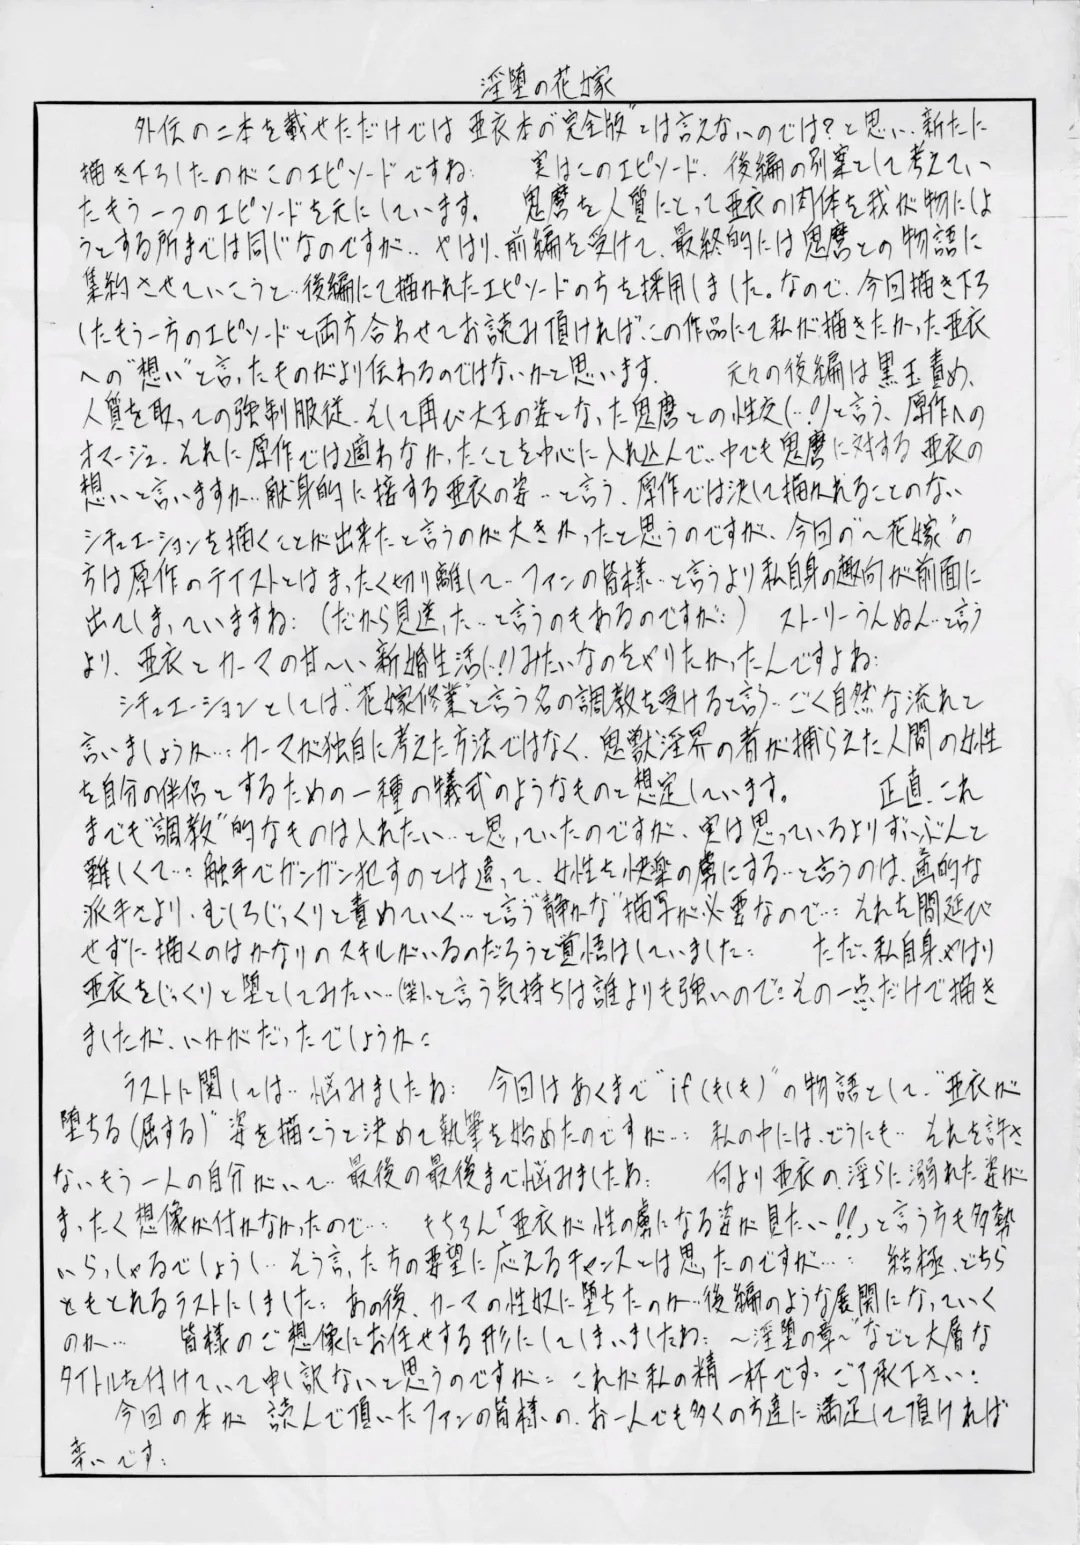 淫堕の花嫁
外伝の二本を載せただけでは亜衣本の"完全版"とは言えないのでは?と思い、新たに
描き下ろしたのがこのエピソードですね… 実はこのエピソード、後編の別案として考えてい
たもう一つのエピソードを元にしています。 鬼麿を人質にとって亜衣の肉体を我が物にしよ
うとする所までは同じなのですが‥やはり、前編を受けて、最終的には鬼麿との物語に
集約させていこうと‥後編にて描かれたエピソードのちを採用しました。なので、今回描き下ろ
したもう一方のエピソードと両方合わせてお読み頂ければ、この作品にて私が描きたかった亜衣
への"想い"と言ったものがより伝わるのではないかと思います。 元々の後編は黒玉責め、
人質を取っての強制服従、そして再び大王の姿となった鬼麿との性交(‥!)と言う、原作への
オマージュ、それに原作では適わなかったことを中心に入れ込んで‥中でも鬼麿に対する亜衣の
想いと言いますか‥献身的に接する亜衣の姿‥と言う、原作では決して描かれることのない
シチュエーションを描くことが出来たと言うのが大きかったと思うのですが、今回の"〜花嫁"の
方は原作のテイストとはまったく切り離して‥ファンの皆様‥と言うより私自身の趣向が前面に
出てしまっていますね… (だから見送った‥と言うのもあるのですが…) ストーリーうんぬん‥と言う
より、亜衣とカーマの甘〜い新婚生活(‥!)みたいなのをやりたかったんですよね…
シチュエーションとしては"花嫁修業"と言う名の調教を受けると言う‥ごく自然な流れと
言いましょうか…カーマが独自に考えた方法ではなく、鬼獣淫界の者が捕らえた人間の女性
を自分の伴侶とするための一種の儀式のようなものと想定しています。 正直、これ
までも"調教"的なものは入れたい‥と思っていたのですが、実は思っているよりずいぶんと
難しくて…触手でガンガン犯すのとは違って、女性を快楽の虜にする‥と言うのは、画的な
派手さより、むしろじっくりと責めていく‥と言う"静かな"描写が必要なので…それを間延び
せずに描くのはかなりのスキルがいるのだろうと覚悟はしていました… ただ、私自身、やはり
亜衣をじっくりと堕としてみたい‥(笑)、と言う気持ちは誰よりも強いので…その一点だけで描き
ましたが、いかがだったでしょうか…
ラストに関しては‥悩みましたね… 今回はあくまで"if(もしも)"の物語として、"亜衣が
堕ちる(屈する)"姿を描こうと決めて執筆を始めたのですが…私の中には、どうにも‥それを許さ
ないもう一人の自分がいて、最後の最後まで悩みましたね… 何より亜衣の、淫らに溺れた姿が
まったく想像が付かなかったので… もちろん「亜衣が性の虜になる姿が見たい!!」と言う方も多勢
いらっしゃるでしょうし‥そう言った方の要望に応えるチャンスとは思ったのですが… 結極、どちら
ともとれるラストにしました…あの後、カーマの性奴に堕ちたのか‥後編のような展開になっていく
のか… 皆様のご想像にお任せする形にしてしまいましたね… 〜淫堕の章〜"などと大層な
タイトルを付けていて申し訳ないと思うのですが…これが私の精一杯です…ご了承下さい…
今回の本が 読んで頂いたファンの皆様の、お一人でも多くの方達に満足して頂ければ
幸いです…